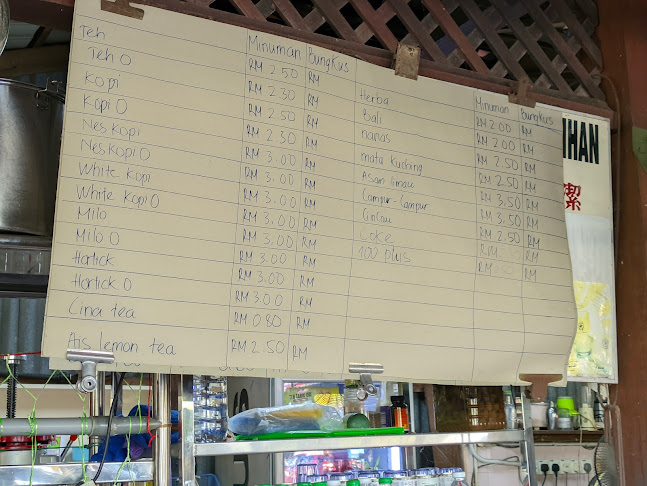 Minuman Bungkus
Teh RM 2.50 RM
Teh O RM 2.30 RM
Kopi RM 2.50 RM
Kopi O RM 2.30 RM
Neskopi RM 3.00 RM
Neskopi O RM 3.00 RM
White kopi RM 3.00 RM
White kopi O RM 3.00 RM
Milo RM 3.00 RM
Milo O RM 3.00 RM
Hortick RM 3.00 RM
Hortick O RM 3.00 RM
Cina tea RM 0.80 RM
Ais lemon tea RM 2.50 RM
Minuman Bungkus
Herba RM 2.00 RM
Bali RM 2.00 RM
nanas RM 2.50 RM
mata kuching RM 2.50 RM
Asam limau RM 3.50 RM
Campur-campur RM 3.50 RM
Cincau RM 2.50 RM
Coke RM RM
100 plus RM RM
IHAN
潔